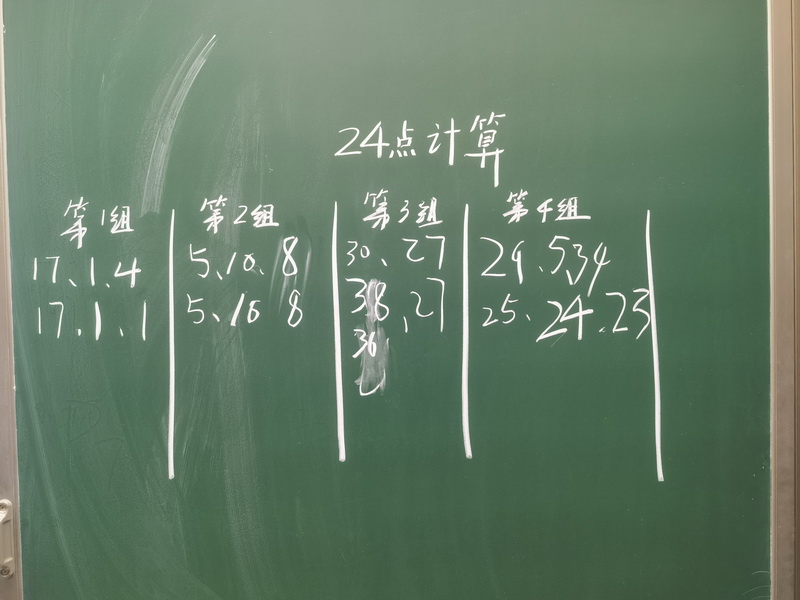 24点计算
第1组
17、1、4
17、1、1
第2组
5、10、8
5、10 8
第3组
30、27
38、27
36
第4组
29、5、34
25、24、23